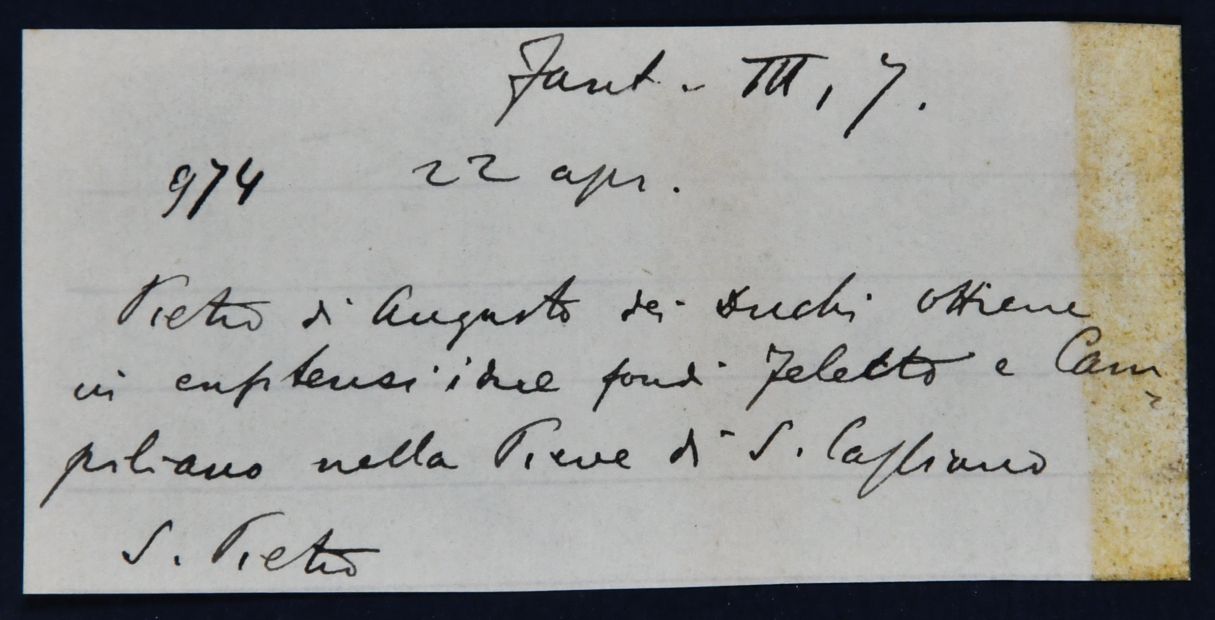 Fant. III, 7.
974 22 apr.
Pietro di Augusto dei Duchi ottiene
in enfiteusi i due fondi Feletto e Cam
piliano nella Pieve di S. Cassiano
S. Pietro